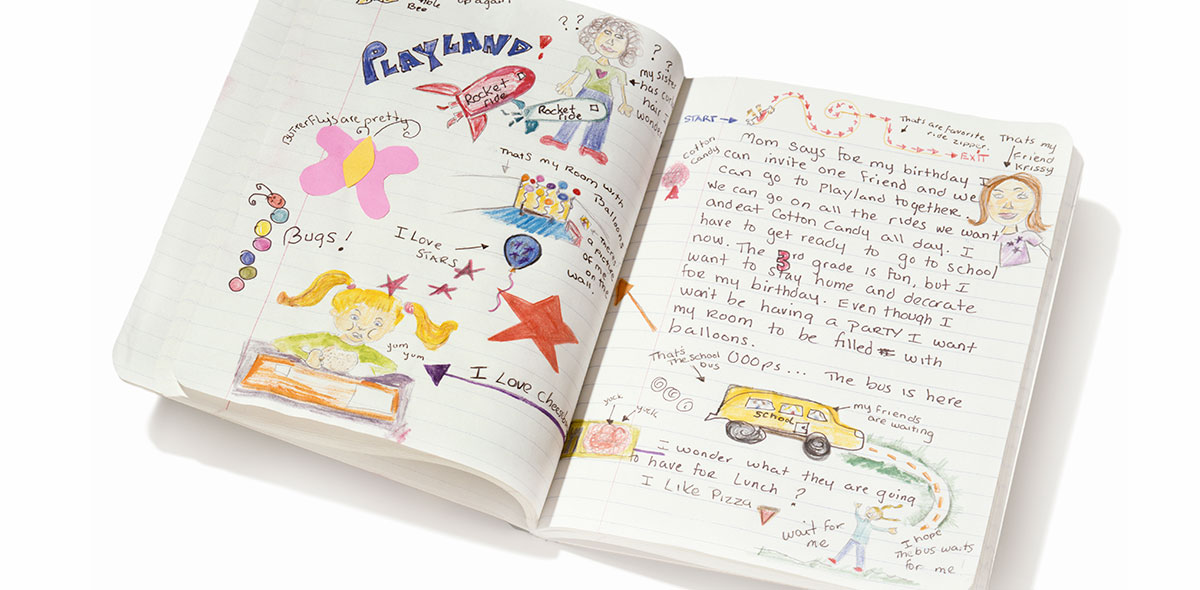 Bee
up again
PLAYLAND!
? ?
?
?
Rocket
ride
Rocket
ride
my sister
has curly
hair I
wonder
Butterflys are pretty
Thats my Room with
Balloons
theres
a picture
of me
on the
wall.
Bugs!
I Love
STARS
yum
yum
I LOVE Cheese
START
Thats are favorite
ride zipper.
EXIT
Thats my
friend
Krissy
cotton
candy
Mom says for my birthday I
can invite one friend and we
can go to Playland together.
we can go on all the rides we want
and eat Cotton Candy all day. I
have to get ready to go to school
now. The 3rd grade is fun, but I
want to stay home and decorate
for my birthday. Even though I
won't be having a PARTY I want
my room to be filled with
balloons.
OOOps... The bus is here
That's
the school
bus
school
my friends
are waiting
yuck
yuck
I wonder what they are going
to have for Lunch?
I Like Pizza
wait for
me
I hope
the bus waits
for me